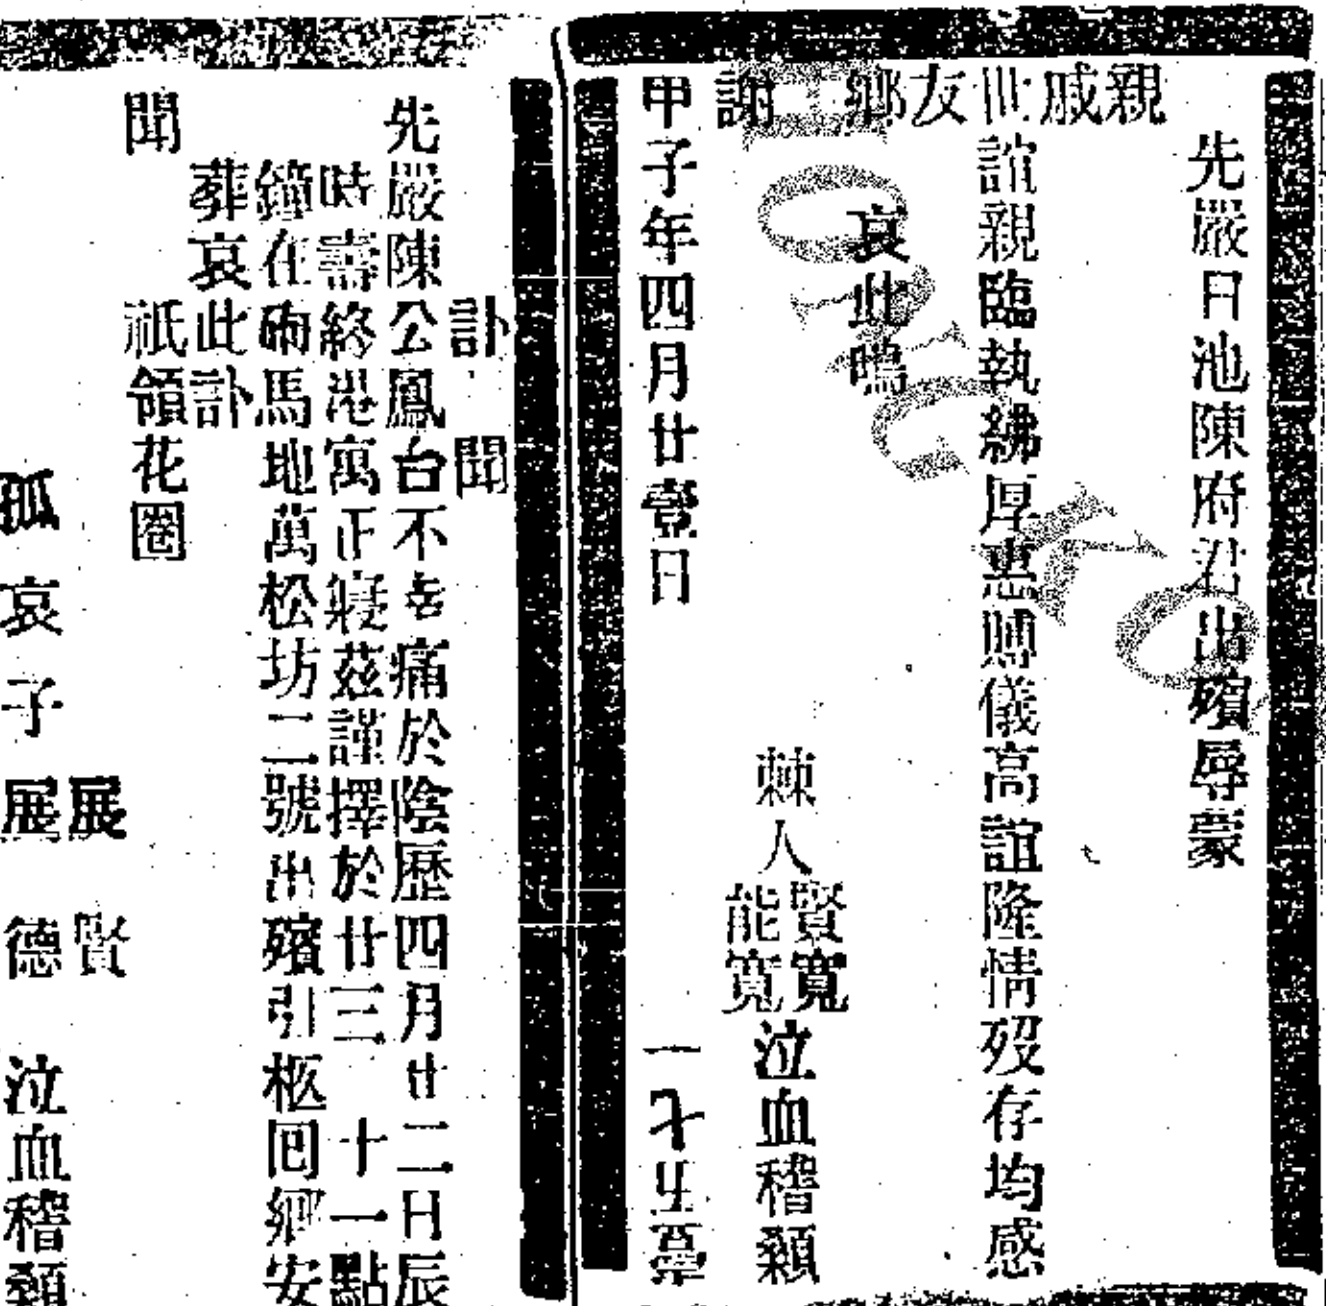 先嚴日池陳府君出殯辱蒙
親
戚
世誼親臨執紼厚惠賻儀高誼隆情歿存均感
友
鄉
哀此鳴
謝
棘人賢寬能寬泣血稽顙
甲子年四月廿壹日
訃聞
先嚴陳公鳳台不幸痛於陰歷四月廿二日辰
時壽終港寓正寢茲謹擇於廿三十一點
鐘在砲馬地萬松坊二號出殯引柩囘鄉安
葬哀此訃
聞
祇領花圈
孤哀子展賢展德泣血稽顙